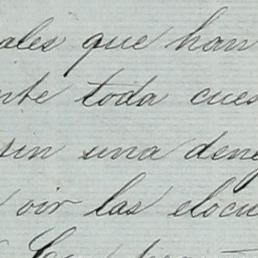 ales que han
nte toda cues
sin una dene
oir las elocu